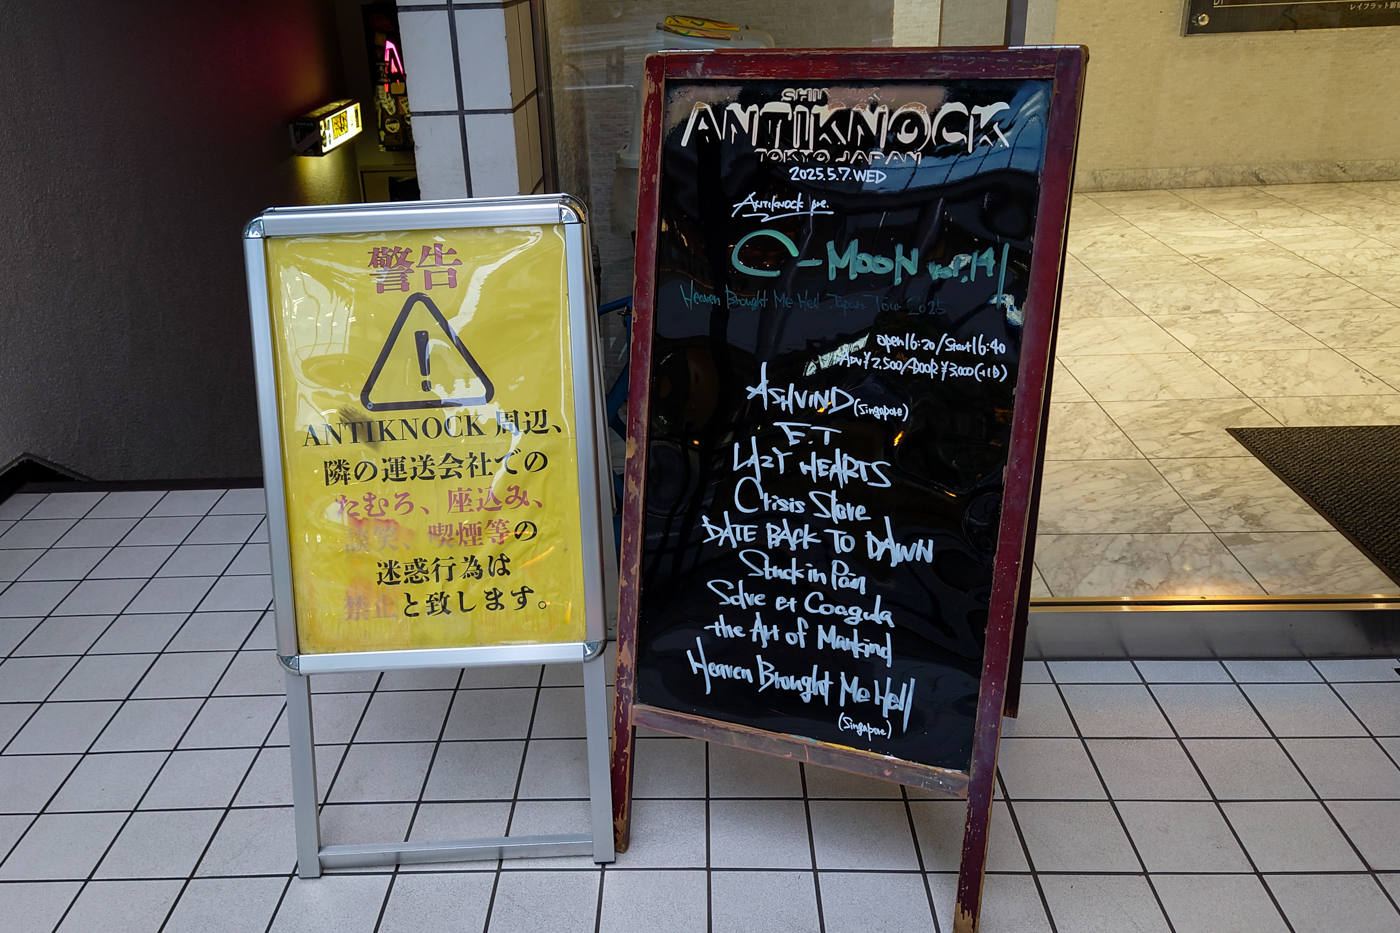 警告
ANTIKNOCK 周辺、
隣の運送会社での
たむろ、座込み、
談笑、喫煙等の
迷惑行為は
禁止と致します。
ANTIKNOCK
TOKYO JAPAN
2025.5.7.WED
ANTIKNOCK pre.
C-MOON vol.141
Heaven Brought Me Hell Japan Tour 2025
open16:20/Start16:40
Adv¥2,500/door¥3,000(+1D)
ASHVIND(Singapore)
E.T
LAZY HEARTS
Crisis Slave
DATE BACK TO DAWN
Stuck in Pain
Solve et Coagula
the Art of Mankind
Heaven Brought Me Hell
(Singapore)